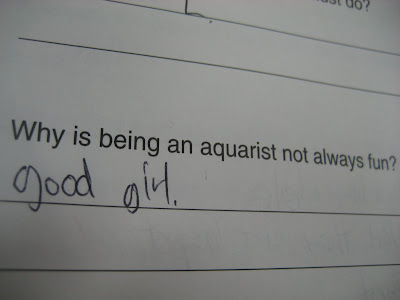 do?
Why is being an aquarist not always fun?
good girl.